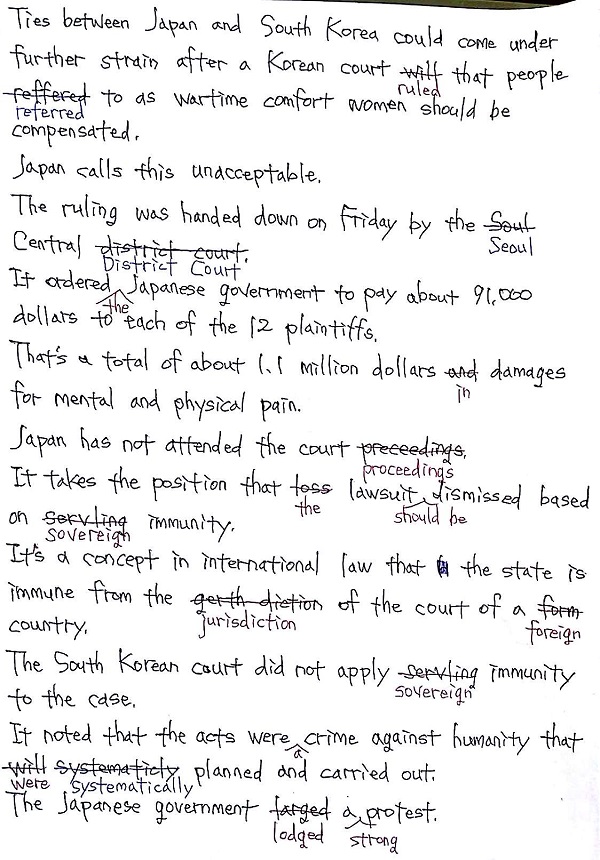 Ties between Japan and South Korea could come under
further strain after a Korean court will that people
ruled
reffered to as wartime comfort women should be
referred
compensated.
Japan calls this unacceptable.
The ruling was handed down on Friday by the Soul
Seoul
Central district court.
District Court
It ordered Japanese government to pay about 91,000
the
dollars to each of the 12 plaintiffs.
That's a total of about 1.1 million dollars and damages
in
for mental and physical pain.
Japan has not attended the court preceedings.
proceedings
It takes the position that loss lawsuit dismissed based
the should be
on servling immunity.
sovereign
It's a concept in international law that the state is
immune from the gerth diction of the court of a form
jurisdiction foreign
country.
The South Korean court did not apply servling immunity
sovereign
to the case.
It noted that the acts were crime against humanity that
a
will systematicly planned and carried out.
were systematically
The Japanese government larged a protest.
lodged strong